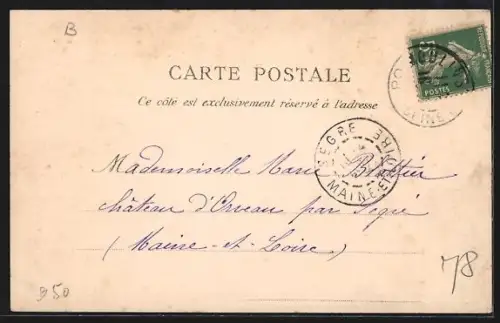 B
CARTE POSTALE
Ce côte est exclusivement réservé à l'adresse
POSTES
SEGRÉ
MAINE-ET-LOIRE
Mademoiselle Marie
château d'Orveau par Segré
(Maine-et-Loire)
950
78